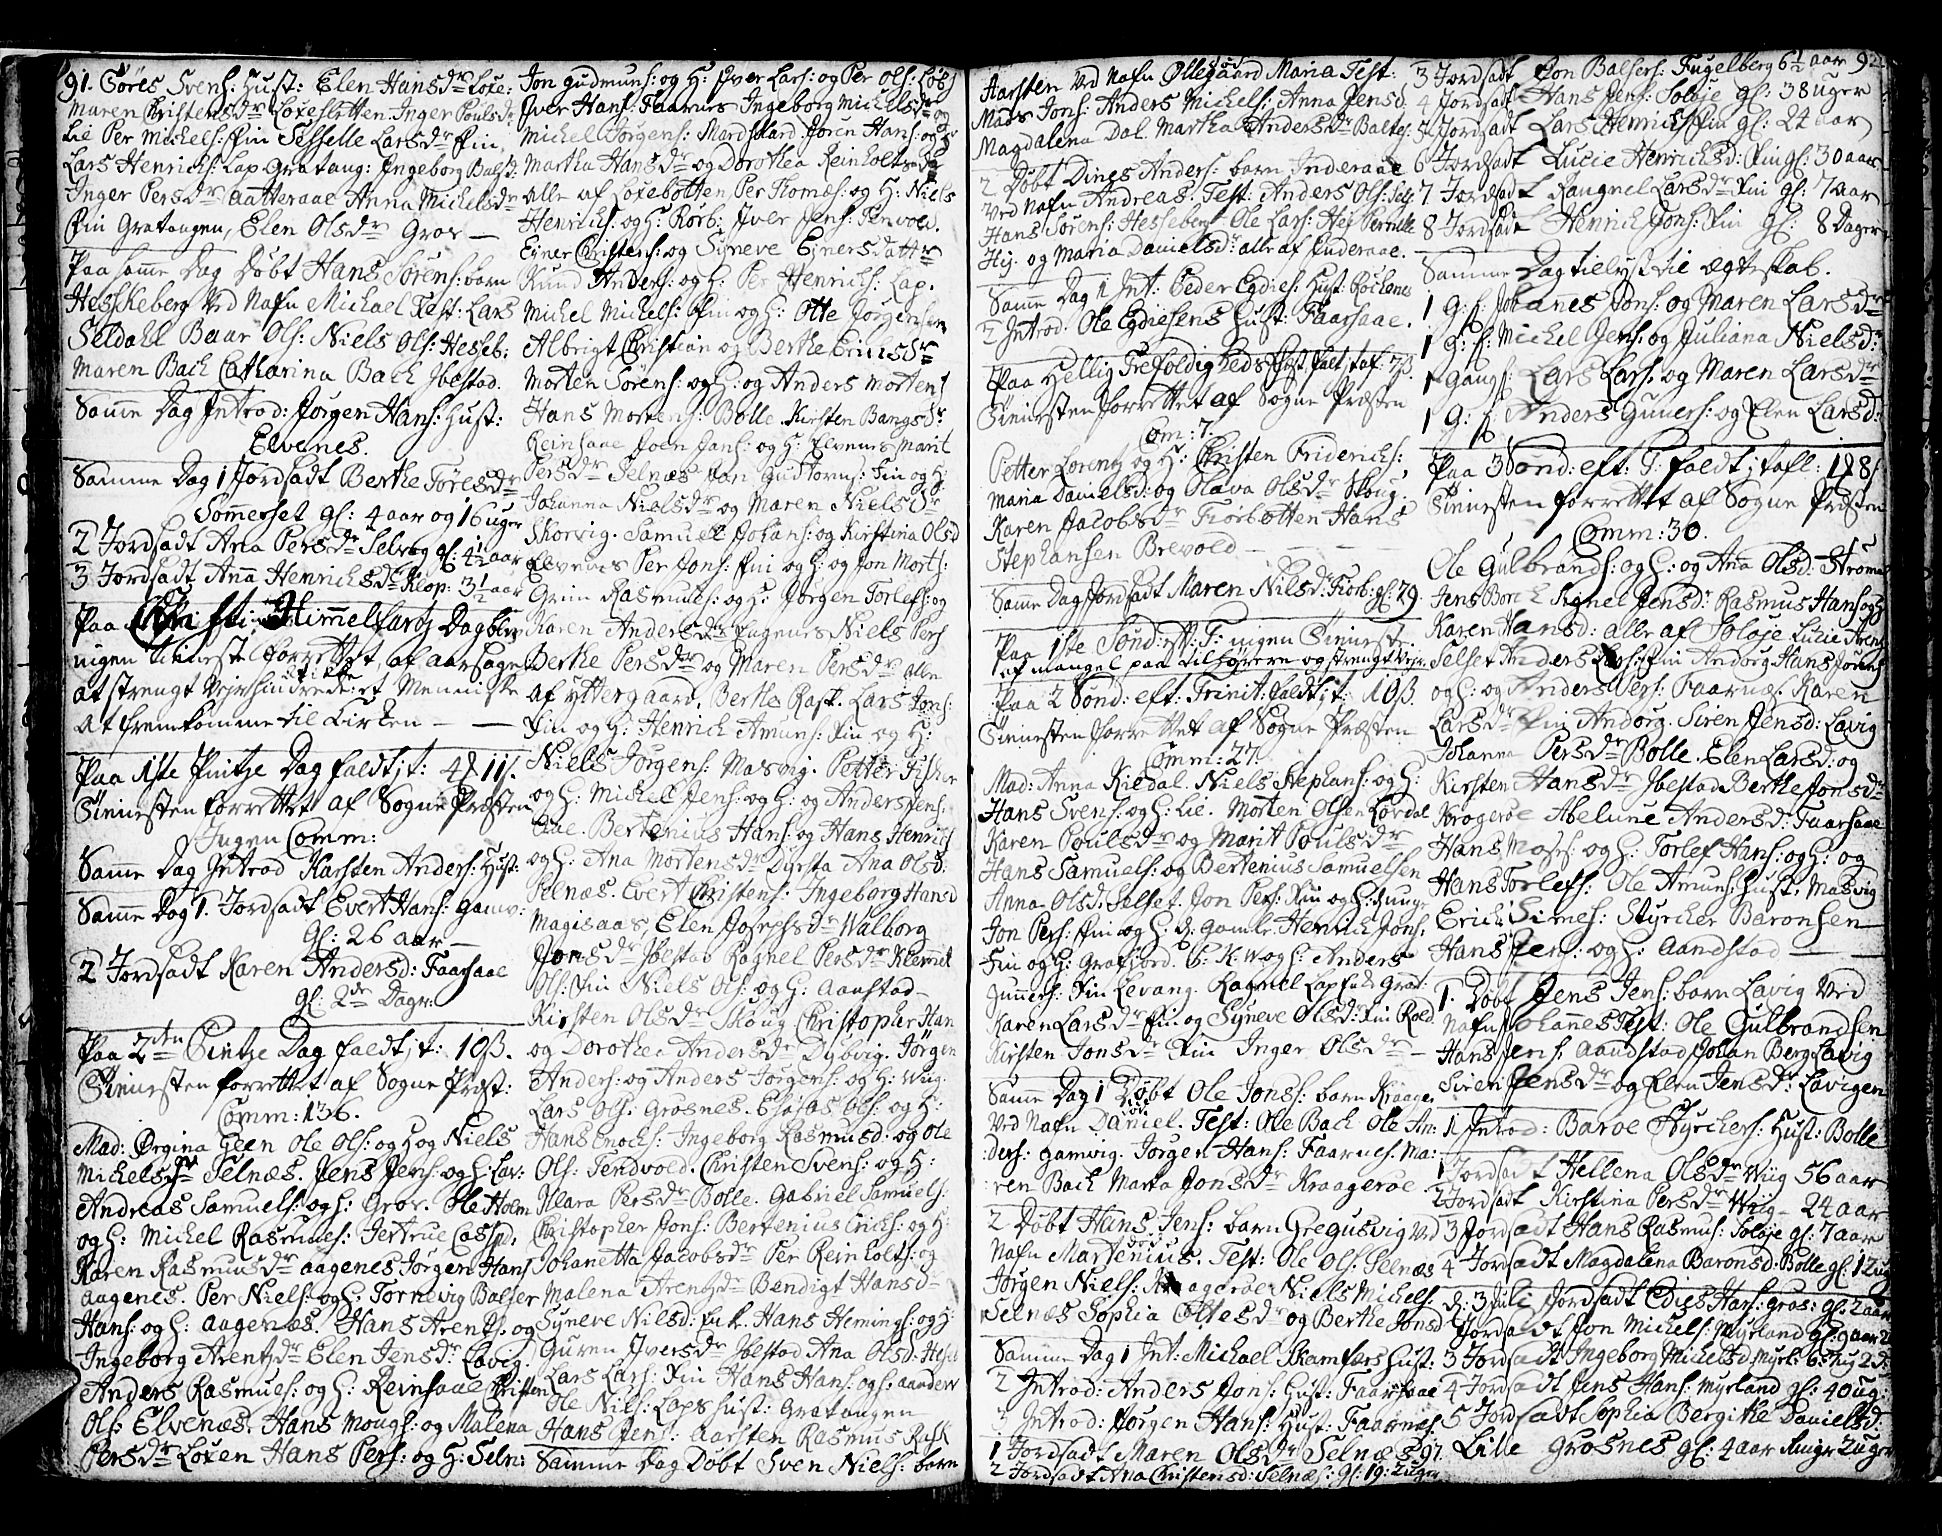 91. Töres Svens: Hust: Elen Hansdr Löxe:
Maren Christensdr Löxesletten. Inger Poulsdr
Lie Per Michels: Fin Sesselle Larsdr Fin,
Lars Henrichs: Lap Gratang: Ingeborg Balsd:
Inger Persdr Aatteraae Anna Michelsdr
Fin Gratangen, Elen Olsdr Gros —
Paa samme Dag Döbt Hans Sörens: barn
Hesskeberg Ved Nafn Michael Test: Lars
Seldahl Baar Ols: Niels Ols: Hesseb:
Maren Bach Catharina Bach Jbestad.
Samme Dag Introd: Jørgen Hans: Hust:
Elvenes.
Samme Dag 1 Jordsadt Berthe Töresdr
Somerset gl: 4 aar og 16 uger
2 Jordsadt Ana Persdr Selvog gl: 4½ aar
3 Jordsadt Anna Henrichsdr Klop: 3½ aar
Paa Christi Himmelfartz Dag blev
ingen tienneste forrettet, af aarsage
at strengt Vejr hindrede et Menniske
at fremkomme til Kirken — —
Paa 1ste Pintze Dag faldt j t: 4 11 s.
Tinnesten forrettet af Sogne Præsten
Ingen Comm:
Samme Dag Introd Karsten Anders: Hust:
Samme Dag 1. Jordsadt Evert Hans: Gamv:
Gl: 26 aar —
2 Jordsadt Karen Andersd: Faarsaae
gl: 2de Dagr.
Paa 2den Pintze Dag faldt j t: 10 ß.
Tinnesten forrettet af Sogne Præst:
Comm: 136.
Mad: Ørgina Geen Ole Ols: og H og Niels
Michelsdr Selnæs. Jens Jens: og H: Lav:
Andreas Samuels: og H: Gros. Ole Holm
og H: Michel Rasmus: Jertrue Caspd.
Karen Rasmusdr Aagenes Jørgen Hans
Aagenes. Per Niels: og H: Tornevig Balser
Hans: og H: Aagenæs. Hans Arentz: og
Ingeborg Arentzdr Elen Jensdr Lavig.
Anders Rasmus: og H: Reinsaae Christen
Ols: Elvenæs. Hans Mougs: og Malena
Persdr Löxen Hans Pers: og H: Seln:
Jon Gudmuns: og H: Iver Lars: og Per Ols: Löxs
Iver Hans: Faarnes Ingeborg Michelsdr
Michel Jörgens: Mardsklard Joren Hans: og H
Martha Hansdr og Dorothea Reinholtsdr
alle af Löxebotten Per Thomæs: og H: Niels
Henrichs: og H: Rörb: Iver Jens: Tenvold.
Einer Christens: og Syneve Einersdattr
Knud Anders: og H: Per Henrichs: Lap.
Michel Michels: Fin og H: Otte Jörgensen
Albrigt Christian og Berthe Erichsdr
Morten Sörens: og H: og Anders Mortens
Hans Mortens: Bolle. Kirsten Bangsdr
Reinsaae Joen Jans: og H: Elvenes Marit
Persdr Selnæs Jon Gudtorms: Fin og H:
Johanna Nielsdr og Maren Nielsdr
Skorvig. Samuel Johans: og Kirstina Olsd
Elvenes Per Jons: Fin og H: og Jon Morts:
Grim Rasmus: og H: Jörgen Torlefs: og
Karen Andersdr Fagenes Niels Pers
Berthe Persdr og Maren Persdr alle
af Yttergaard. Berthe Rast. Lars Jons:
Fin og H: Henrich Amuns: Fin og H:
Niels Jörgens: Masvig. Petter Fisker
og H: Michel Jens: og H: og Anders Jens:
Aae. Bertenius Hans: og Hans Henrichs
og H: Ana Mortensdr Dyrsta Ana Olsd:
Selnæs. Evert Christens: Ingeborg Hansd
Magisaas, Elen Josephsdr Walborg
Jonsdr Jbestad Ragnel Persdr Klemmet
Ols: Fin Niels Ols: og H: Aanstad —
Kirsten Olsdr Skoug Christopher Han
og Dorothea Andersdr Dybvig. Jörgen
Anders: og Anders Jörgens: og H: Wiig.
Lars Ols: Grosnes. Esaias Ols: og H:
Hans Enochs: Ingeborg Rasmusd: og Ole
Ols: Tendvold. Christen Svens: og H:
Klara Persdr Bolle. Gabriel Samuels:
Christopher Jons: Bertenius Erichs: og H:
Johanetta Jacobsdr Per Reinholts: og
Malena Arentzdr Bendigt Hansd —
Syneve Nilsd: Enk. Hans Hemings: og H:
Guren Iversdr Jbestad Ana Olsd: Hessl
Lars Lars: Fin Hans Hans: og H: Aanderv
Ole Nils: Laps Hust: Gratangen
Hans Jens: Aarsten Rasmus Rast
Samme Dag Döbt Sven Niels: barn
Aarsten Ved Nafn Ollegaard Maria Test:
Mads Jons: Anders Michels: Anna Jensd
Magdalena Dal. Martha Andersdr Baltes
2 Döbt Dines Anders: barn Inderaae
Ved Nafn Andreas. Test: Anders Ols: Sels
Hans Sörens: Hesseberg Ole Lars: Hej Pernille
Hej. og Maria Danielsdr: alle af Inderaae.
Samme Dag 1 Int: Peder Egdies: Hust: Rochenes
2 Introd. Ole Egdiesens Hust: Faarsaae.
Paa Hellig Trefoldigheds Fest falt j taf: 7 ß.
Tinnesten forrettet af Sogne Præsten
Com: 7.
Petter Lorentz og H: Christen Friderichs:
Maria Danielsd: og Olava Olsdr Skoug.
Karen Jacobsdr Fiorbotten Hans
Stephansen Brevold — — —
Samme Dag Jordsadt Maren Nilsd: Fiorb: gl: 79.
Paa 1ste Sönd: eft: T: ingen Tinneste
af mangel paa tilhørere og strengt Vejr.
Paa 2 Sönd: eft: Trinit: faldt j t: 10 ß
Tinnesten forrettet af Sogne Præsten
Comm: 27.
Mad: Anna Kildal. Niels Stephans: og H:
Hans Svens: og H: Lie. Morten Olsen Lördal
Karen Poulsdr og Marit Poulsdr
Hans Samuels: og Bertenius Samuelsen
Anna Olsd. Selset. Jon Pers: Fin og H: d. ung:
Jon Pers: Fin og H: d. gamle. Henrich Jons:
Fin og H: Grafjord. b. K: W og H: Anders
Gunners: Fin Levang. Ragnel Laps: Grat:
Karen Larsdr Fin og Syneve Olsd: Fin Roed
Kirsten Jonsdr Fin Inger Olsdr —
Samme Dag 1 Döbt Ole Jons: barn Kraager
Ved Nafn Daniel. Test: Ole Bach Ole An:
ders: Gamvig. Jörgen Hans: Faarnes. Ma:
ren Bach Marta Jonsdr Kraageröe
2 Döbt Hans Jens: barn Gregusvig Ved
Nafn Martenius. Test: Ole Ols: Selnæs
Jörgen Niels: Kraageröe Niels Michels.
Selnæs Sophia Ottesdr og Berthe Jonsd
Samme Dag 1 Int: Michael Skamfærs Hust:
2 Introd: Anders Jons: Hust: Faarsaae
3 Introd: Jörgen Hans: Hust: Faarnes.
1 Jordsadt Maren Olsdr Selnæs 97.
2 Jordsadt Ana Christensd: Selnæs: gl: 19: 2 uger
3 Jordsadt Jon Balsers: Fugelberg 6½ aar 92
4 Jordsadt Hans Jens: Soløje gl: 38 uger
5 Jordsadt Lars Henrichs: Fin gl: 24 aar
6 Jordsadt Lucie Henrichsd: Fin gl: 30 aar
7 Jordsadt Rangnel Larsdr Fin gl: 7 aar
8 Jordsadt Henrich Jons: Fin gl: 8 Dager
Samme Dag tielyst til ægteskab.
1 G: f: Johanes Jons: og Maren Larsdr
1 g: f: Michel Jens: og Juliana Nielsdr
1 gang f: Lars Lars: og Maren Larsdr
1 g: f: Anders Guners: og Elen Larsd:
Paa 3 Sönd: eft: T: faldt j tafl: 1 8 s
Tinnesten forrettet af Sogne Præsten
Comm: 30.
Ole Gulbrands: og H: og Ana Olsd: Strömmen
Jens Borch Signel Jensdr: Rasmus Hans og H
Karen Hansd: alle af Soløje Licie Arents
Selset Anders Lars: Fin Andorg Hans Jörens
og H: og Anders Pers: Faarnæs. Karen
Larsdr Fin Andorg. Siren Jensd: Lavig
Johanna Persdr Bolle. Elen Larsd: og
Kirsten Hansdr Jbestad Berthe Jonsdr
Krogeröe Abelune Andersd: Faarsaae
Hans Moses: og H: Torlef Hans: og H: og
Hans Torlefs: Ole Amuns: Hust: Masvig
Erich Simes: Styrcher Baronsen —
Hans Jens: og H: Aandstad — —
1. Döbt Jens Jens: barn Lavig Ved
Nafn Johannes Test: Ole Gulbrandsen
Hans Jens: Aandstad Johan Berg Lavig
Siren Jensdr og Elen Jensdr Lavigen
1 Introd: Baroe Styrchers: Hust: Bolle
1 Jordsadt Hellena Olsdr Wiig 56 aar
2 Jordsadt Kirstina Persdr Wiig — 24 aar
3 Jordsadt Hans Rasmus: Soløje gl: 7 aar
4 Jordsadt Magdalena Baronsd: Bolle gl: 12 ug
d: 3 Juli Jordsadt Edies Hans: Gros: gl: 2 aar
Jordsadt Jon Michels: Myrland gl: 9 aar 2
3 Jordsadt Ingeborg Michelsd Myrl: 6: ug 2 d:
4 Jordsadt Jens Hans: Myrland gl: 40 ug:
5 Jordsadt Sophia Bergithe Danielsd:
Lille Grosnes gl: 4 aar 2 uger